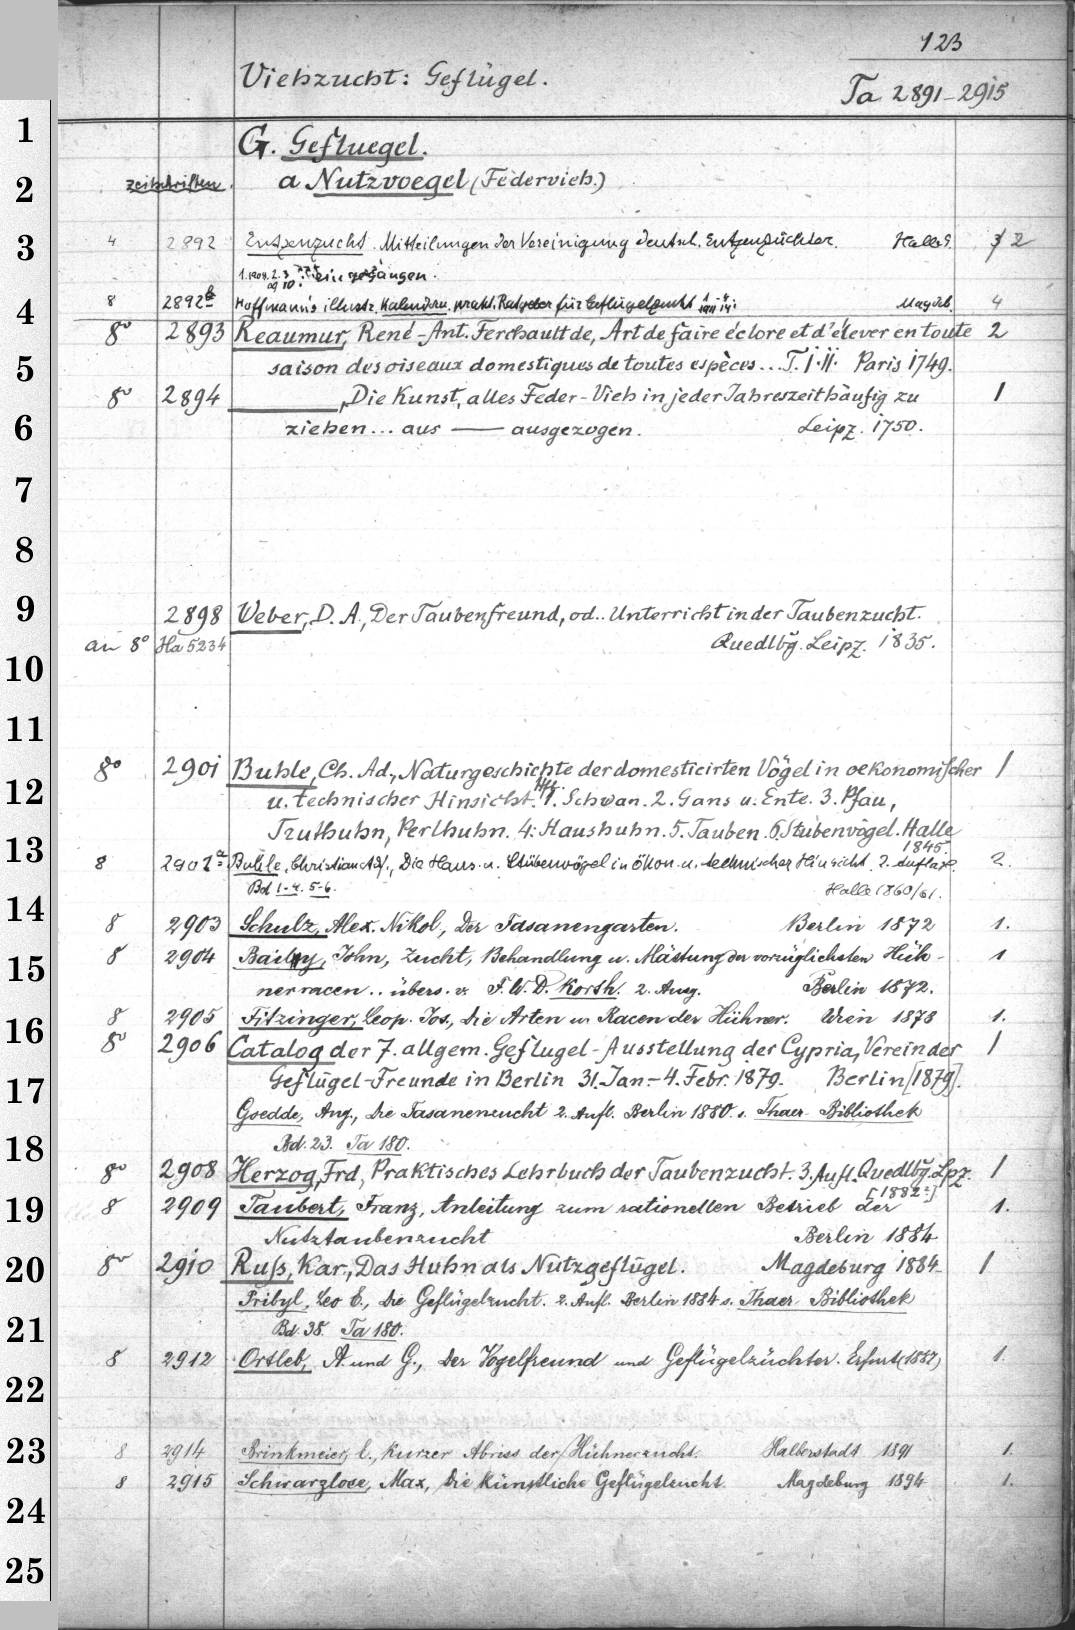 123
Viehzucht: Geflügel.
Ta 2891-2915
1
G. Gefluegel.
2 Zeitschriften. a Nutzvoegel (Federvieh.)
3 4 2892 Entenzucht. Mitteilungen der Vereinigung deutsch. Entenzüchter. Halle S. 2
1. 1908. 2. 3 eingegangen.
4 8 2892b Hoffmann's illustr. Kalender u. prakt. Ratgeber für Geflügelzucht Magdeb. 4
8° 2893 Reaumur, René-Ant. Ferchault de, Art de faire éclore et d'élever en toute 2
5 saison des oiseaux domestiques de toutes espèces... T. I.II. Paris 1749.
8° 2894 ———, Die Kunst, alles Feder-Vieh in jeder Jahreszeit häufig zu 1
6 ziehen... aus —— ausgezogen. Leipz. 1750.
7
8
9 2898 Weber, D. A., Der Taubenfreund, od.. Unterricht in der Taubenzucht.
an 8° Ha 5234 Quedlbg. Leipz. 1835.
10
11
8° 2901 Buhle, Ch. Ad., Naturgeschichte der domesticirten Vögel in oekonomischer 1
12 u. technischer Hinsicht. Hft. 1. Schwan. 2. Gans u. Ente. 3. Pfau,
Truthuhn, Perlhuhn. 4. Haushuhn. 5. Tauben. 6. Stubenvögel. Halle
1845.
13 8 2901a Buhle, Christian Ad., Die Haus- u. Stubenvögel in ökon. u. technischer Hinsicht. 2. Auflage. 2.
Bd 1-4. 5-6. Halle 1860/61.
14 8 2903 Schulz, Alex. Nikol, Der Fasanengarten. Berlin 1872 1.
15 8 2904 Baily, John, Zucht, Behandlung u. Mästung der vorzüglichsten Hüh- 1
nerracen.. übers. v. F. W. D. Korth. 2. Ausg. Berlin 1872.
8 2905 Fitzinger, Leop. Jos., Die Arten u. Racen der Hühner. Wien 1878 1.
16 8° 2906 Catalog der 7. allgem. Geflügel-Ausstellung der Cypria, Verein der 1
Geflügel-Freunde in Berlin 31. Jan. - 4. Febr. 1879. Berlin [1879].
17 Goedde, Aug., Die Fasanenzucht 2. Aufl. Berlin 1880. s. Thaer-Bibliothek
18 Bd. 23. Ta 180.
8° 2908 Herzog, Frd, Praktisches Lehrbuch der Taubenzucht. 3. Aufl. Quedlbg. Lpz. 1
[1882.]
19 8 2909 Taubert, Franz, Anleitung zum rationellen Betrieb der 1.
Nutztaubenzucht Berlin 1884
20 8° 2910 Ruß, Kar., Das Huhn als Nutzgeflügel. Magdeburg 1884 1
Pribyl, Leo E., Die Geflügelzucht. 2. Aufl. Berlin 1884 s. Thaer-Bibliothek
21 Bd. 38. Ta 180.
8 2912 Ortleb, A. und G., Der Vogelfreund und Geflügelzüchter. Erfurt (1887) 1.
22
23 8 2914 Brinkmeier, E., Kurzer Abriss der Hühnerzucht. Halberstadt 1891 1.
8 2915 Schwarzlose, Max, Die künstliche Geflügelzucht. Magdeburg 1894 1.
24
25